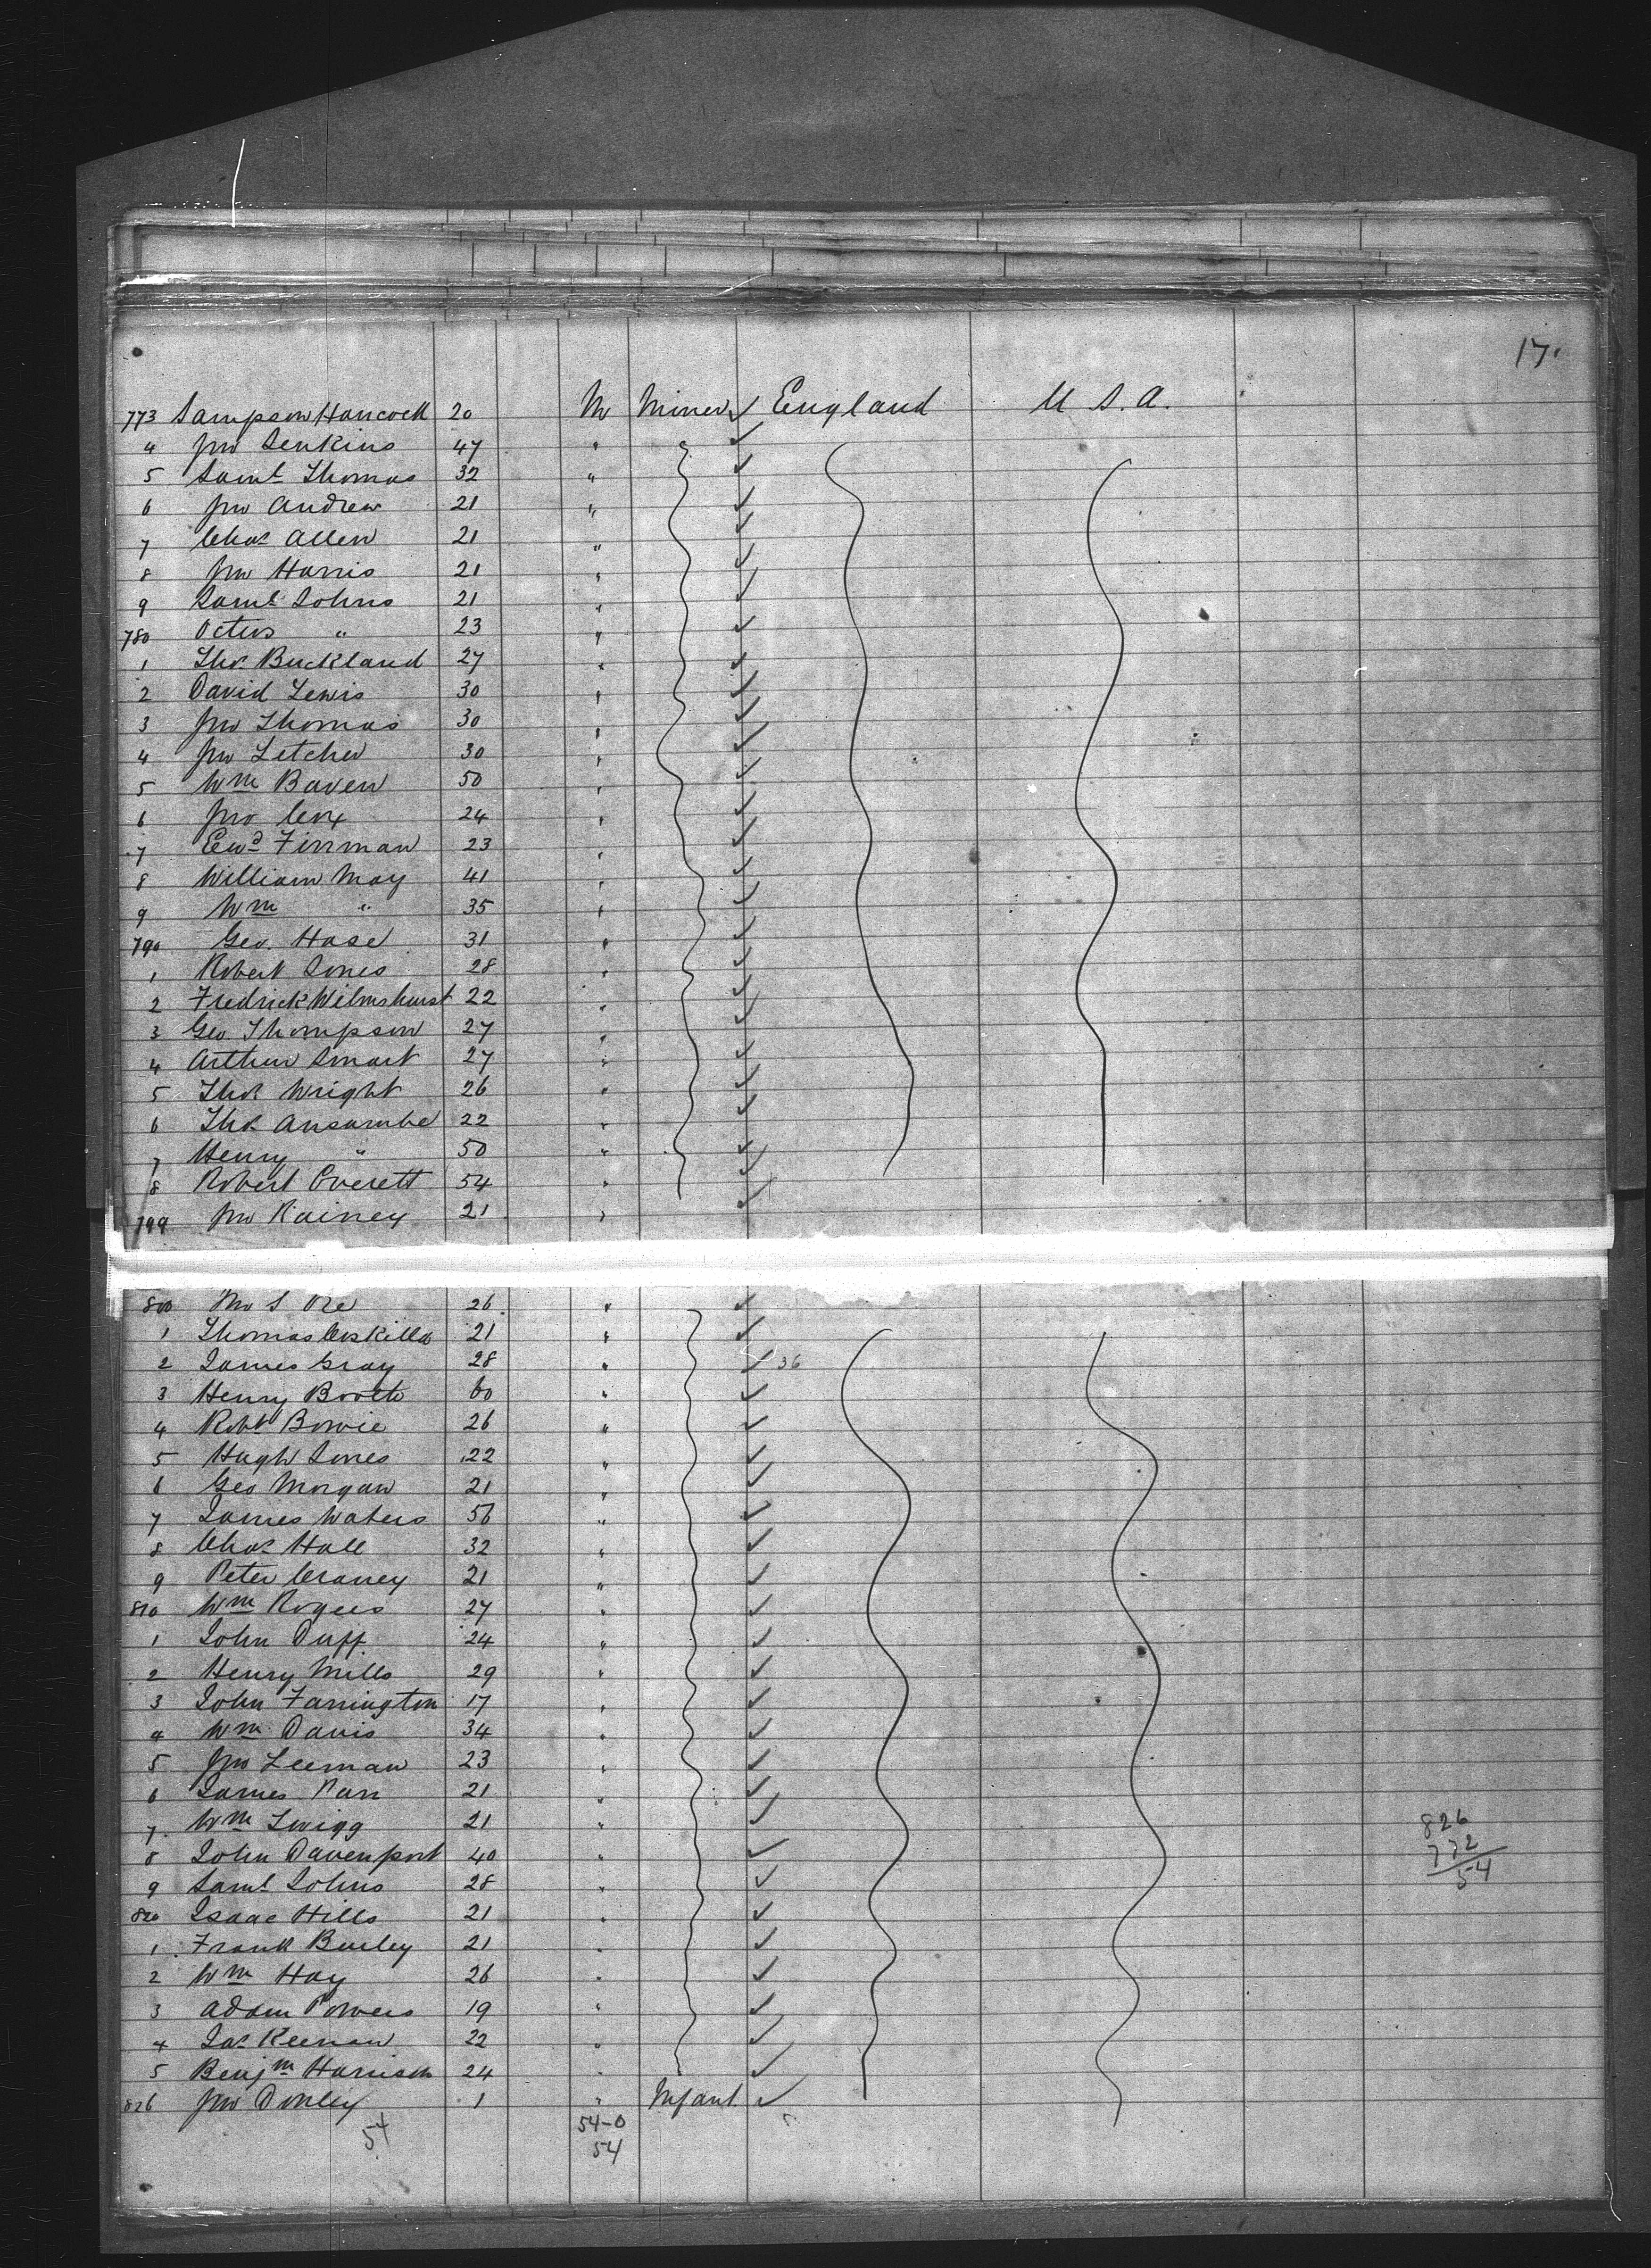 17.
773 Sampson Hancock 20 M Miner ✓ England U S. A.
4 Jno Jenkins 47 " ✓
5 Saml Thomas 32 " ✓
6 Jno Andrew 21 " ✓
7 Chas Allen 21 " ✓
8 Jno Harris 21 " ✓
9 Saml Johns 21 " ✓
780 " 23 " ✓
1 Thos Buckland 27 " ✓
2 David Lewis 30 " ✓
3 Jno Thomas 30 " ✓
4 Jno Letcher 30 " ✓
5 Wm Baven 50 " ✓
6 Jno Cox 24 " ✓
7 Edwd Finman 23 " ✓
8 William May 41 " ✓
9 Wm " 35 " ✓
790 Geo. Hase 31 " ✓
1 Robert Jones 28 " ✓
2 Fredrick Wilmshurst 22 " ✓
3 Geo Thompson 27 " ✓
4 Arthur Smart 27 " ✓
5 Thos Wright 26 " ✓
6 Thos Ansombe 22 " ✓
7 Henry " 50 " ✓
8 Robert Everett 54 " ✓
799 Jno Rainey 21 " ✓
800 26 " ✓
1 Thomas 21 " ✓
2 James Gray 28 " ✓ 36
3 Henry Booth 60 " ✓
4 Robt Bowie 26 " ✓
5 Hugh Jones 22 " ✓
6 Geo Morgan 21 " ✓
7 James Waters 56 " ✓
8 Chas Hall 32 " ✓
9 Peter Craney 21 " ✓
810 Wm Rogers 27 " ✓
1 John Duff 24 " ✓
2 Henry Mills 29 " ✓
3 John Farrington 17 " ✓
4 Wm Davis 34 " ✓
5 Jno Leeman 23 " ✓
6 James Parr 21 " ✓
7 Wm Twigg 21 " ✓
826
8 John Davenport 40 " ✓
772
54
9 Saml Johns 28 " ✓
820 Isaac Hills 21 " ✓
1 Frank Burley 21 " ✓
2 Wm Hay 26 " ✓
3 Adam Powers 19 " ✓
4 Jas Keenan 22 " ✓
5 Benjm Harrison 24 " ✓
826 Jno Donley 1 " Infant ✓
54 54-0
54